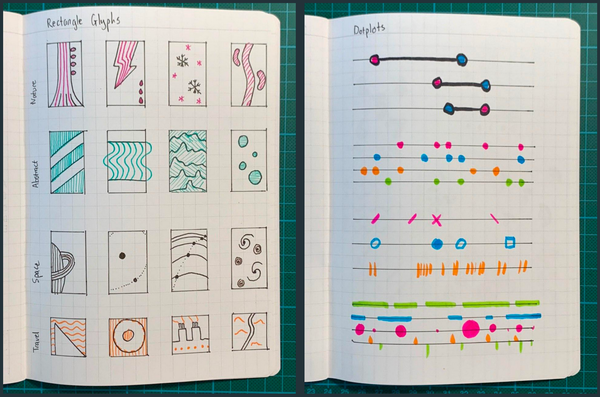 Rectangle Glyphs
Nature
Abstract
Space
Travel
Dotplots